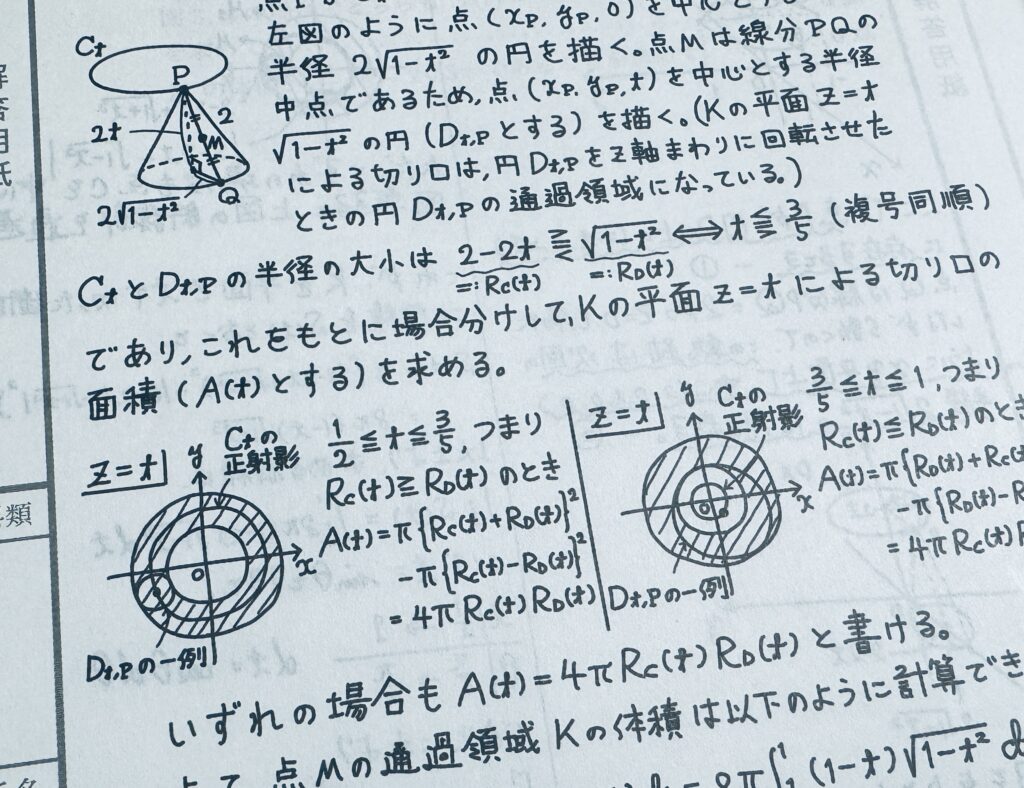 左図のように点 (xP, yP, 0) を中心とする
半径 2√1-t² の円を描く。点Mは線分PQの
中点であるため, 点 (xP, yP, t) を中心とする半径
√1-t² の円 (Dt,Pとする) を描く。(Kの平面 z=t
による切り口は, 円Dt,Pをz軸まわりに回転させた
ときの円 Dt,Pの通過領域になっている。)
Ct
P
2
2t
M
Q
2√1-t²
CtとDt,Pの半径の大小は 2-2t ⪌ √1-t² ⇔ t ≦≧ 3/5 (複号同順)
=: Rc(t) =: RD(t)
であり, これをもとに場合分けして, Kの平面 z=t による切り口の
面積 (A(t)とする) を求める。
z=t
y
Ctの
正射影
x
O
Dt,Pの一例
1/2 ≦ t ≦ 3/5, つまり
Rc(t) ≧ RD(t) のとき
A(t)=π{Rc(t)+RD(t)}²
-π{Rc(t)-RD(t)}²
=4πRc(t)RD(t)
z=t
y
Ctの
正射影
x
O
Dt,Pの一例
3/5 ≦ t ≦ 1, つまり
Rc(t) ≦ RD(t) のとき
A(t)=π{RD(t)+Rc(
-π{RD(t)-R
=4πRc(t)R
いずれの場合も A(t)=4πRc(t)RD(t) と書ける。
よって, 点Mの通過領域 Kの体積は以下のように計算でき
=8π∫ (1-t)√1-t² d
類